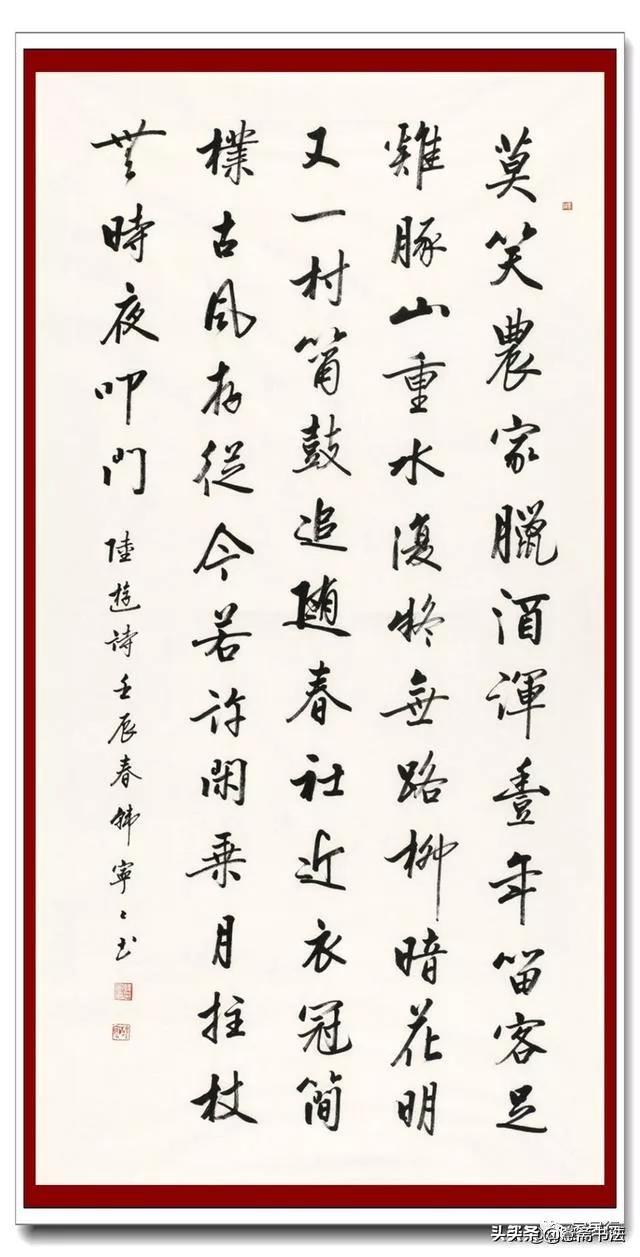 莫笑農家臘酒渾豐年留客足
雞豚山重水復疑無路柳暗花明
又一村簫鼓追隨春社近衣冠簡
樸古風存從今若許閑乘月拄杖
無時夜叩門
陸游詩壬辰春韩寧〻书
头条
书法